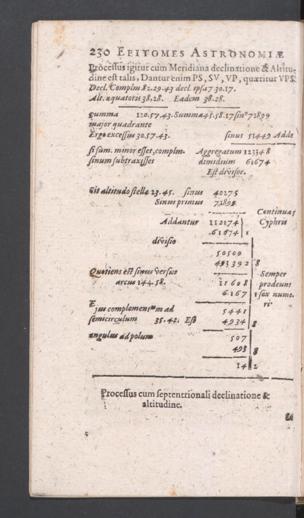 230 EPITOMES ASTRONOMIÆ
Processus igitur cum Meridiana declinatione & Altitu-
dine est talis, Dantur enim PS, SV, VP, quæritur VPS.
Decl. Complm 82.29.43 decl. ipsa 7 30.17.
Alt. æquatoris 38.28. Eadem 38.28.
summa 120.57.43. Summa 45.58.17 sin⁹ 71899
major quadrante
Ergo excessus 30.57.43. sinus 51449 Adde
si sum. minor esset, complm- Aggregatum 123348
sinum subtraxisses dimidium 61674
Est divisor.
Sit altitudo stellæ 23.45. sinus 40275
Sinus primus 71899
Continuas
Addantur 112174 Cyphris
61674 1
divisio
50500
493392 8
Quotiens est sinus versus Semper
arcus 144.58. 11608 prodeunt
6167 1 sex nume-
ri
Ejus complementm ad 5441
semicirculum 35.42. Est 4934 8
angulus ad polum 507
493 8
14 2
Processus cum septentrionali declinatione &
altitudine.